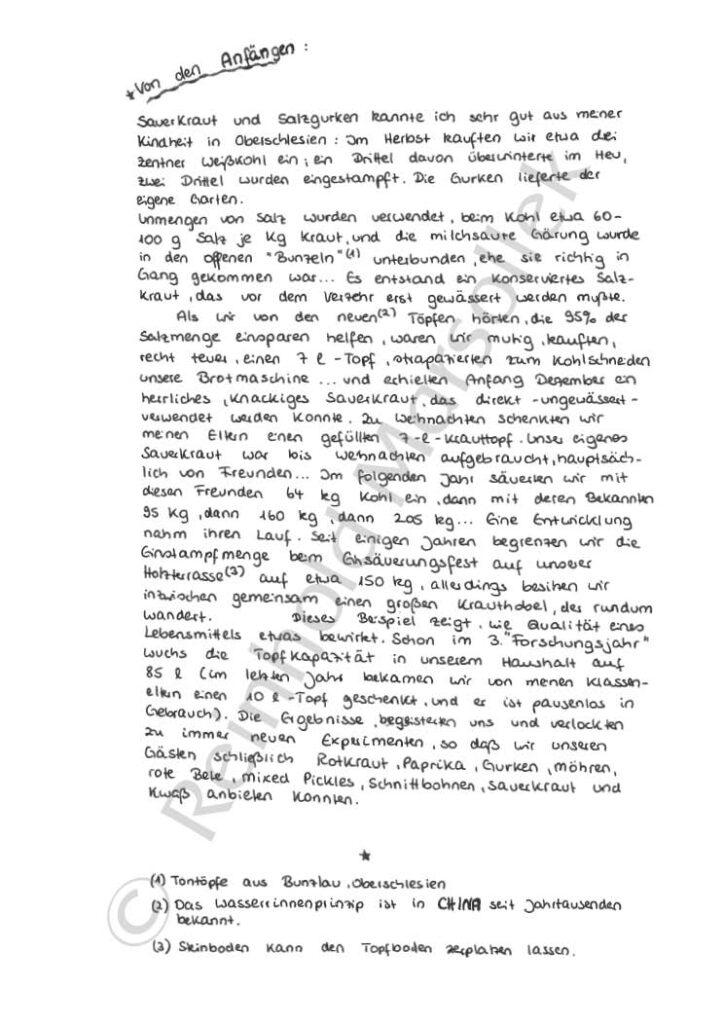 ★Von den Anfängen:
Sauerkraut und Salzgurken kannte ich sehr gut aus meiner
Kindheit in Oberschlesien: Im Herbst kauften wir etwa drei
Zentner Weißkohl ein; ein Drittel davon überwinterte im Heu,
zwei Drittel wurden eingestampft. Die Gurken lieferte der
eigene Garten.
Unmengen von Salz wurden verwendet, beim Kohl etwa 60-
100 g Salz je Kg Kraut, und die milchsaure Gärung wurde
in den offenen "Bunzeln"(1) unterbunden, ehe sie richtig in
Gang gekommen war... Es entstand ein konserviertes Salz-
kraut, das vor dem Verzehr erst gewässert werden mußte.
Als wir von den neuen(2) Töpfen hörten, die 95% der
Salzmenge einsparen helfen, waren wir mutig, kauften,
recht teuer, einen 7 l-Topf, strapazierten zum Kohlschneiden
unsere Brotmaschine ... und erhielten Anfang Dezember ein
herrliches, knackiges Sauerkraut, das direkt -ungewässert-
verwendet werden konnte. Zu Weihnachten schenkten wir
meinen Eltern einen gefüllten 7-l-Krauttopf. Unser eigenes
Sauerkraut war bis Weihnachten aufgebraucht, hauptsäch-
lich von Freunden... Im folgenden Jahr säuerten wir mit
diesen Freunden 64 kg Kohl ein, dann mit deren Bekannten
95 Kg, dann 160 kg, dann 205 kg... Eine Entwicklung
nahm ihren Lauf. Seit einigen Jahren begrenzen wir die
Einstampfmenge beim Einsäuerungsfest auf unserer
Holzterrasse(3) auf etwa 150 kg, allerdings besitzen wir
inzwischen gemeinsam einen großen Krauthobel, der rundum
wandert. Dieses Beispiel zeigt, wie Qualität eines
Lebensmittels etwas bewirkt. Schon im 3. "Forschungsjahr"
wuchs die Topfkapazität in unserem Haushalt auf
85 l (im letzten Jahr bekamen wir von meinen Klassen-
eltern einen 10 l-Topf geschenkt, und er ist pausenlos in
Gebrauch). Die Ergebnisse begeisterten uns und verlockten
zu immer neuen Experimenten, so daß wir unseren
Gästen schließlich Rotkraut, Paprika, Gurken, Möhren,
rote Bete, mixed Pickles, Schnittbohnen, Sauerkraut und
Kwaß anbieten konnten.
★
(1) Tontöpfe aus Bunzlau, Oberschlesien
(2) Das Wasserrinnenprinzip ist in CHINA seit Jahrtausenden
bekannt.
(3) Steinboden kann den Topfboden zerplatzen lassen.
© Reinhold Marsollek